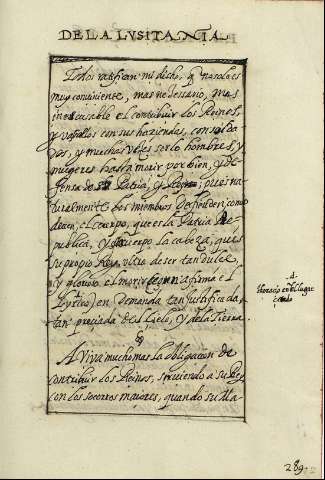 DE LA LVSITANIA.
Todos ratifican mi dicho, q̃ no solo es
muy conviniente, mas necessario, mas
inescusable el contribuir los Reinos,
y vasallos con sus haziendas, con solda
dos, y muchas vezes ser lo hombres, y
mugeres hasta morir por bien, y de
fensa de su Patria, y Reino, pues na
turalmente los miembros defienden, como
deven, el cuerpo, que es la Patria Re
publica, y el cuerpo la cabeza, que es
su propio Rey, ultra de ser tan dulce,
y glorioso el morir (segun afirma el
Lyrico) en demanda tan justificada,
tan preciada del Cielo, y de la Tierra.
Aviva mucho mas la obligacion de
contribuir los Reinos, sirviendo a su Rey
con los socorros maiores, quando su Ma
.d.
Horacio en el lugar
citado
289